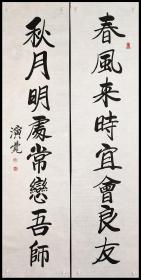 春風来時宜會良友
秋月明處常戀吾師
演覺